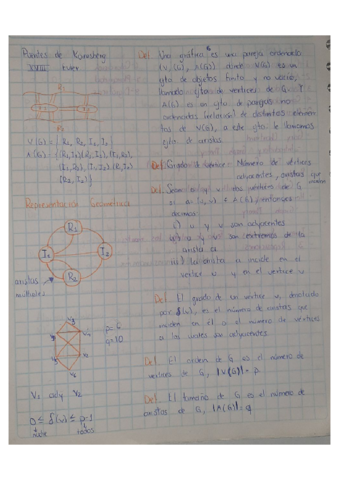 Puentes de Konisberg
XVIII Euler
R₁
R₂
V(G) = { R₁, R₂, I₁, I₂
Representación Geométrica
R₁
I₁
I₂
R₂
aristas
multiples
p=6
q=10
V₁ ady V₂
0 ≤ δ(v) ≤ p-1
nadie
todos
Def Una gráfica G es una pareja ordenada
(V(G), A(G)) donde V(G) es un
cjto de objetos finito y no vacío,
llamado cjto de vertices de G. Y
A(G) es un cjto de parejas no
ordenadas de distintos
de V(G), a este cjto le llamamos
cjto de aristas
Def Grado Número de vértices
adyacentes, aristas que
Def Sean u y v dos vértices de G
si a = (u, v) ∈ A(G) entonces
decimos
i) u y v son adyacentes
u y v son extremos de la
arista a
iii) la arista a incide en el
vertice u y en el vertice v
Def El grado de un vertice v, denotado
por δ(v), es el número de aristas que
inciden en él o el número de vertices
a los cuales son adyacentes
Def El orden de G es el número de
vertices de G, |V(G)| = p
Def El tamaño de G es el número de
aristas de G, |A(G)| = q